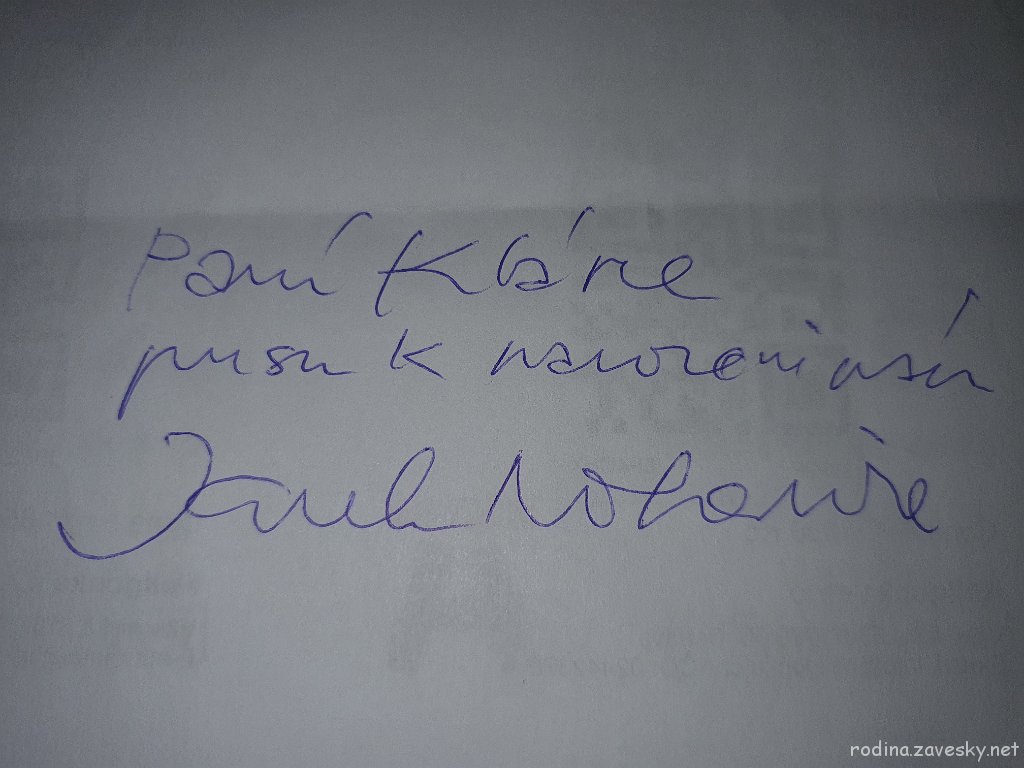 Paní Kláře
pusu k narozeninám
Jarek Nohavica
rodina.zavesky.net